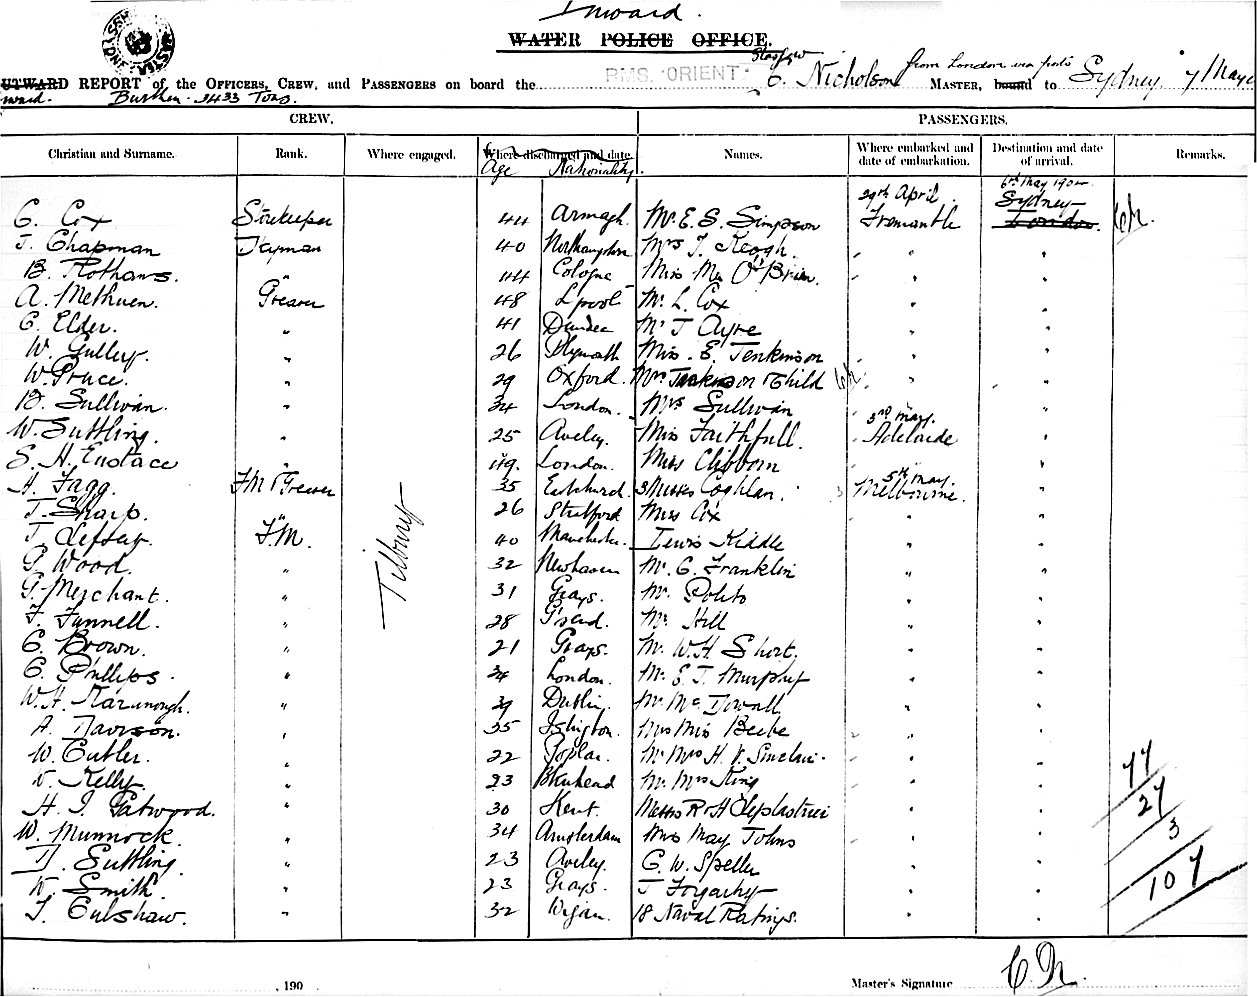 Inward.
WATER POLICE OFFICE.
Glasgow
OUTWARD REPORT of the Officers, Crew, and Passengers on board the RMS. ORIENT. C. Nicholson MASTER, bound to Sydney 7 May
from London via ports
ward. Burthen 3433 Tons.
CREW. PASSENGERS.
Christian and Surname. Rank. Where engaged. Where discharged and date. Names. Where embarked and date of embarkation. Destination and date of arrival. Remarks.
Age Nationality.
29th April 6th May 190
C. Cox Storekeeper 44 Armagh. Mr. E. S. Simpson Fremantle Sydney London.
J. Chapman 40 Northampton Mrs J. Keogh. " "
B. Rothams. " 44 Cologne Miss O'Brien. " "
A. Methuen. Greaser 48 L'pool Mr. L. Cox " "
C. Elder. " 41 Dundee Mr J Ayre " "
W. Gulley. " 26 Plymouth Miss. E. Jenkinson " "
W. Pruce. " 29 Oxford. Mrs Jenkinson & Child " "
B. Sullivan. " 34 London. Mrs Sullivan "
3rd May.
W. Suttling. " 25 Aveley. Miss Faithfull. Adelaide "
S. H. Eustace " 49. London. Miss Clibborn " "
5th May.
A. Fagg. F.M & Greaser 35 Eastchurch. 3 Misses Coghlan. Melbourne. "
J. Sharp. " 26 Stratford Miss Cox " "
Tilbury
F.M. 40 Manchester. Lewis Kiddle " "
G. Wood. " 32 Newhaven Mr. C. Franklin " "
G. Merchant. " 31 Grays. Mr. Polito " "
F. Funnell. " 28 G'send. Mr Hill " "
C. Brown. " 21 Grays. Mr. W. H. Short. " "
C. Phillips. " 34 London. Mr. E. J. Murphy " "
W. H. Kavanough. " 39 Dublin. Mr. McDowall " "
A. Davison. " 35 Islington. Mrs Miss Beebe " "
W. Cutler. " 22 Poplar. Mr Mrs H. V. Sinclair. " "
W. Kelly. " 23 B'kenhead Mr. Mrs King " " 77
H. J. Gatwood. " 30 Kent. Messrs R & H " " 27
W. Munnock. " 34 Amsterdam Mrs May Johns " " 3
Suttling. " 23 Aveley. C. W. Speller " " 107
W. Smith. " 23 Grays. J Fogarty " "
J. Culshaw. " 32 Wigan. 18 Naval Ratings. " "
190 Master's Signature C.N.